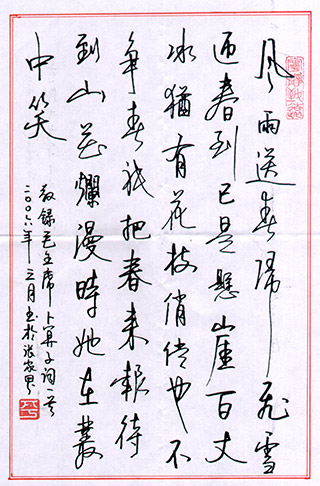 风雨送春归飞雪
迎春到已是懸崖百丈
冰猶有花枝俏俏也不
争春祇把春来報待
到山花爛漫時她在叢
中笑
敬録毛主席卜算子词一首
二〇〇六年三月书於张家界